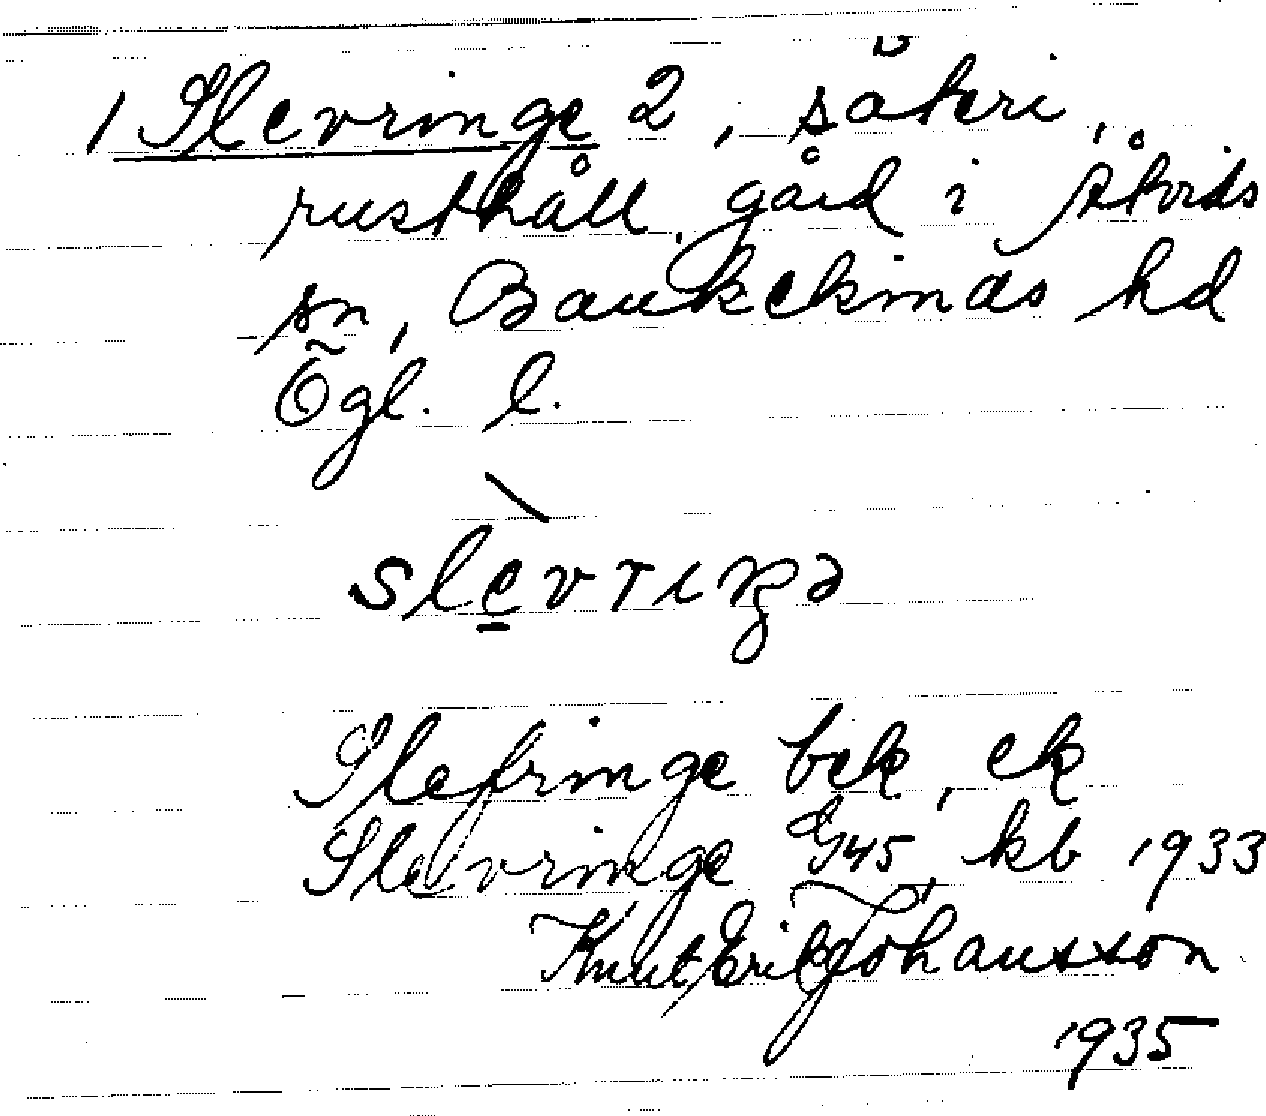 1 Slevringe 2, säteri,
rusthåll, gård i Åtvids
sn, Bankekinds hd
Ögl. l.
slevrıŋə
Slefringe bek, ek
Slevringe G45, kb 1933
Knut Erik Johansson
1935